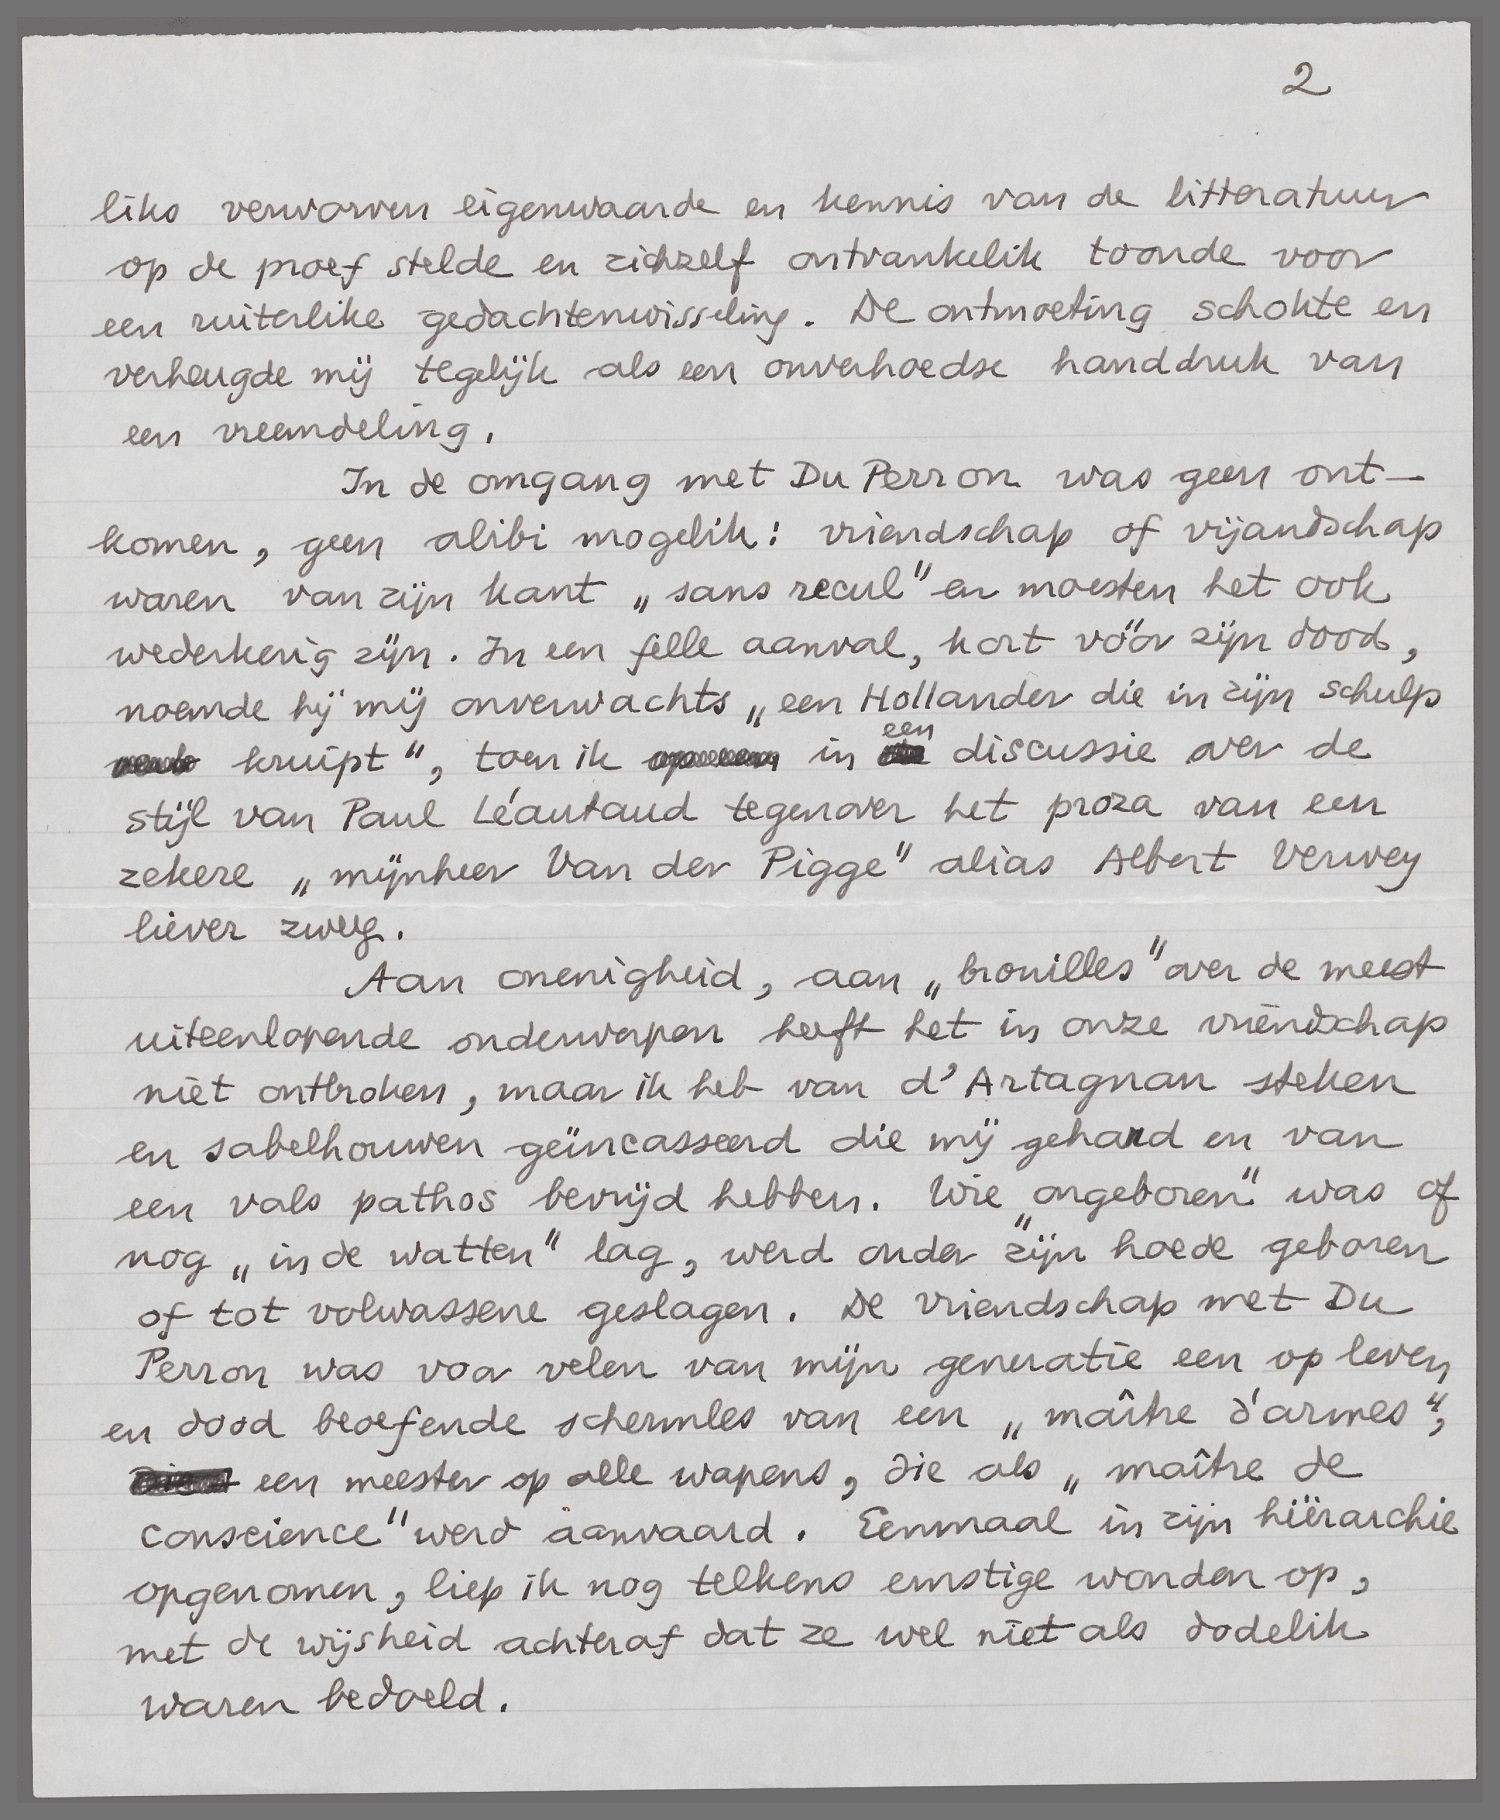 2
liks verworven eigenwaarde en kennis van de litteratuur
op de proef stelde en zichzelf ontvankelik toonde voor
een ruiterlike gedachtenwisseling. De ontmoeting schokte en
verheugde mij tegelijk als een onverhoedse handdruk van
een vreemdeling.
In de omgang met Du Perron was geen ont-
komen, geen alibi mogelik: vriendschap of vijandschap
waren van zijn kant „sans recul” en moesten het ook
wederkerig zijn. In een felle aanval, kort vóór zijn dood,
noemde hij mij onverwachts „een Hollander die in zijn schulp
kruipt”, toen ik in een discussie over de
stijl van Paul Léautaud tegenover het proza van een
zekere „mijnheer Van der Pigge” alias Albert Verwey
liever zweeg.
Aan onenigheid, aan „brouilles” over de meest
uiteenlopende onderwerpen heeft het in onze vriendschap
niet ontbroken, maar ik heb van d'Artagnan steken
en sabelhouwen geïncasseerd die mij gehard en van
een vals pathos bevrijd hebben. Wie „ongeboren” was of
nog „in de watten” lag, werd onder zijn hoede geboren
of tot volwassene geslagen. De vriendschap met Du
Perron was voor velen van mijn generatie een op leven
en dood beoefende schermles van een „maître d'armes”,
een meester op alle wapens, die als „maître de
conscience” werd aanvaard. Eenmaal in zijn hiërarchie
opgenomen, liep ik nog telkens ernstige wonden op,
met de wijsheid achteraf dat ze wel niet als dodelik
waren bedoeld.